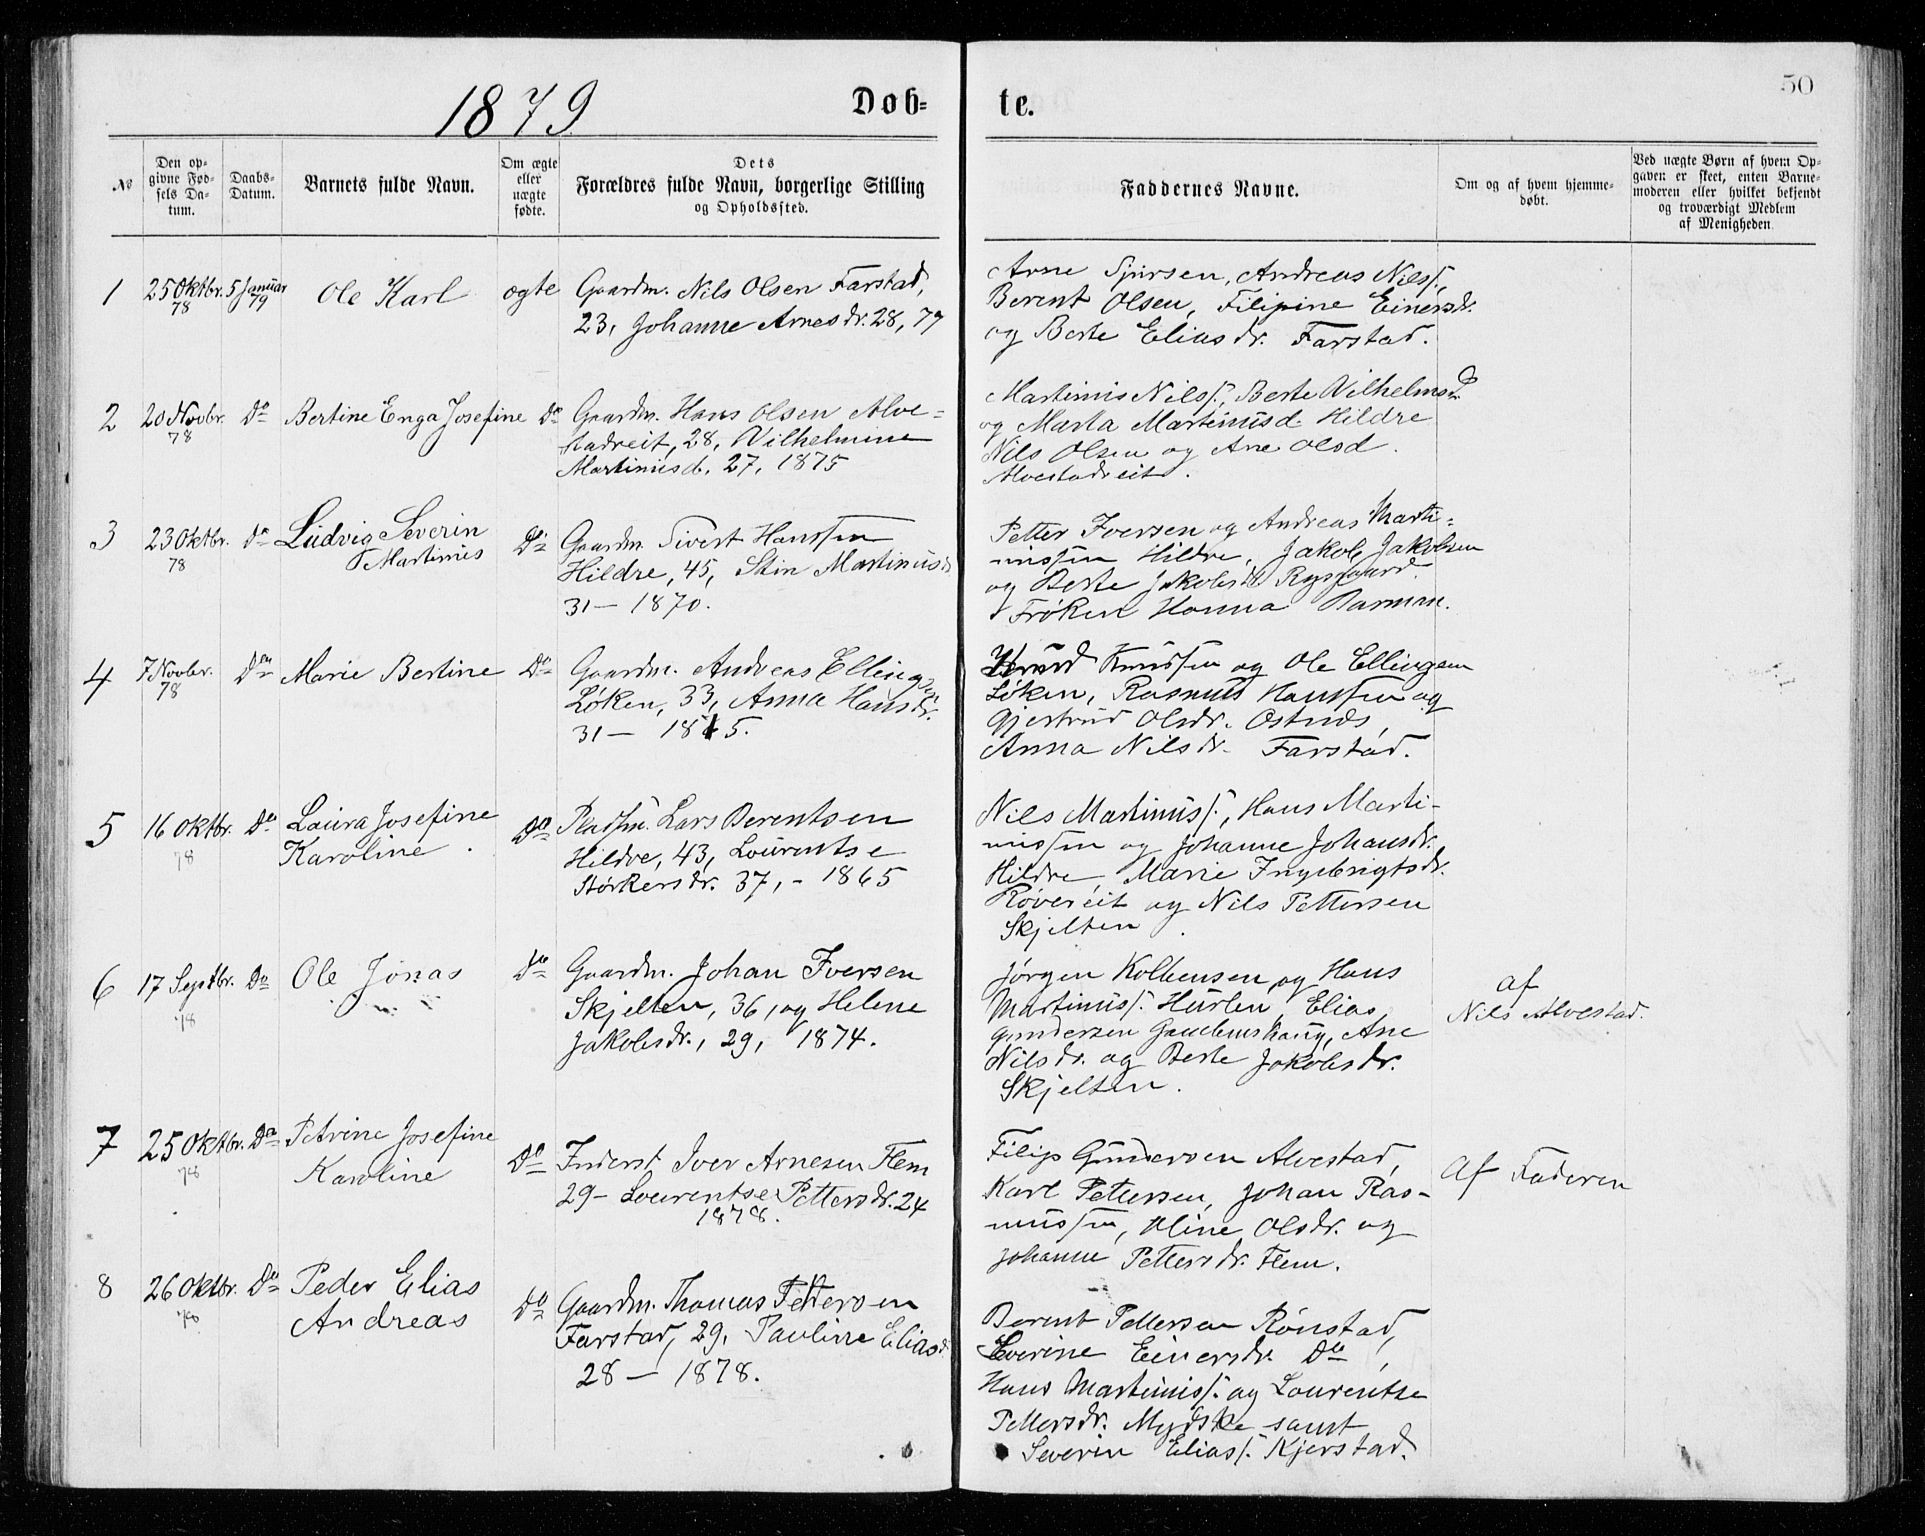 1879
Døb-
te.
50
No
Den op-
givne Fød-
sels Da-
tum.
Daabs-
Datum.
Barnets fulde Navn.
Om ægte
eller
uægte
fødte.
Dets
Forældres fulde Navn, borgerlige Stilling
og Opholdssted.
Faddernes Navne.
Om og af hvem hjemme-
døbt.
Ved uægte Børn af hvem Op-
gaven er skeet, enten Barne-
moderen eller hvilket bekjendt
og troværdigt Medlem
af Menigheden.
1
25 Oktbr.
78
5 Januar
79
Ole Karl
ægte
Gaardm. Nils Olsen Farstad,
23, Johanne Arnesdr. 28, 77
Arne Sjursen, Andreas Nilss.,
Berent Olsen, Filipine Einersdr.
og Berte Eliasdr. Farstad.
2
20 Novbr.
78
Do
Bertine Enga Josefine
Do
Gaardm. Hans Olsen Alve-
stadreit, 28, Vilhelmine
Martinusd. 27, 1875
Martinus Nilss., Berte Vilhelmsd.
og Marta Martinusd. Hildre
Nils Olsen og Ane Olsd.
Alvestadreit.
3
23 Oktbr.
78
Do
Ludvig Severin
Martinus
Do
Gaardm. Sivert Hanssen
Hildre, 45, Stin Martinusd.
31 — 1870.
Petter Iversen og Andreas Marti-
nussen Hildre, Jakob Jakobsen
og Berte Jakobsdr. Rysgaard.
Frøken Hanna Darman.
4
7 Novbr.
78
Do
Marie Bertine
Do
Gaardm. Andreas Ellings.
Løken, 33, Anna Hansdr.
31 — 1875.
Knud Knudsen og Ole Ellingsen
Løken, Rasmus Hanssen og
Gjertrud Olsdr. Ostnes,
Anna Nilsdr. Farstad.
5
16 Oktbr.
78
Do
Laura Josefine
Karoline.
Do
Pladsm. Lars Berentsen
Hildre, 43, Lourentse
Størkersdr. 37, - 1865
Nils Martinuss., Hans Marti-
nussen og Johanne Johansdr.
Hildre, Marie Ingebrigtsdr.
Røvereit og Nils Pettersen
Skjelten.
6
17 Septbr.
78
Do
Ole Jonas
Do
Gaardm. Johan Iversen
Skjelten, 36, og Helene
Jakobsdr., 29, 1874.
Jørgen Kolbensen og Hans
Martinuss. Hurlen, Elias
Gundersen Gamlemshaug, Ane
Nilsdr. og Berte Jakobsdr.
Skjelten.
af
Nils Alvestad.
7
25 Oktbr.
78
Do
Petrine Josefine
Karoline
Do
Inderst Iver Arnesen Flem
29 - Lourentse Pettersdr. 24
1878.
Filip Gundersen Alvestad,
Karl Pettersen, Johan Ras-
mussen, Oline Olsdr. og
Johanne Pettersdr. Flem.
Af Faderen
8
26 Oktbr.
78
Do
Peder Elias
Andreas
Do
Gaardm. Thomas Pettersen
Farstad, 29, Pauline Eliasd.
28 — 1878.
Berent Pettersen Rønstad,
Everine Einersdr. Do,
Hans Martinuss. og Lourentse
Pettersdr. Mydske samt
Severin Eliass. Kjerstad.